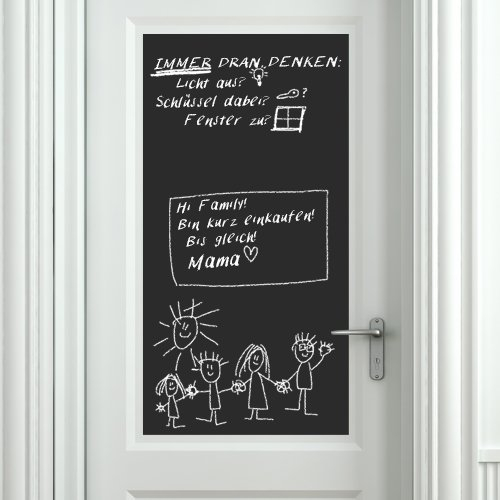 IMMER DRAN DENKEN:
Licht aus?
Schlüssel dabei? ?
Fenster zu?
Hi Family!
Bin kurz einkaufen!
Bis gleich!
Mama